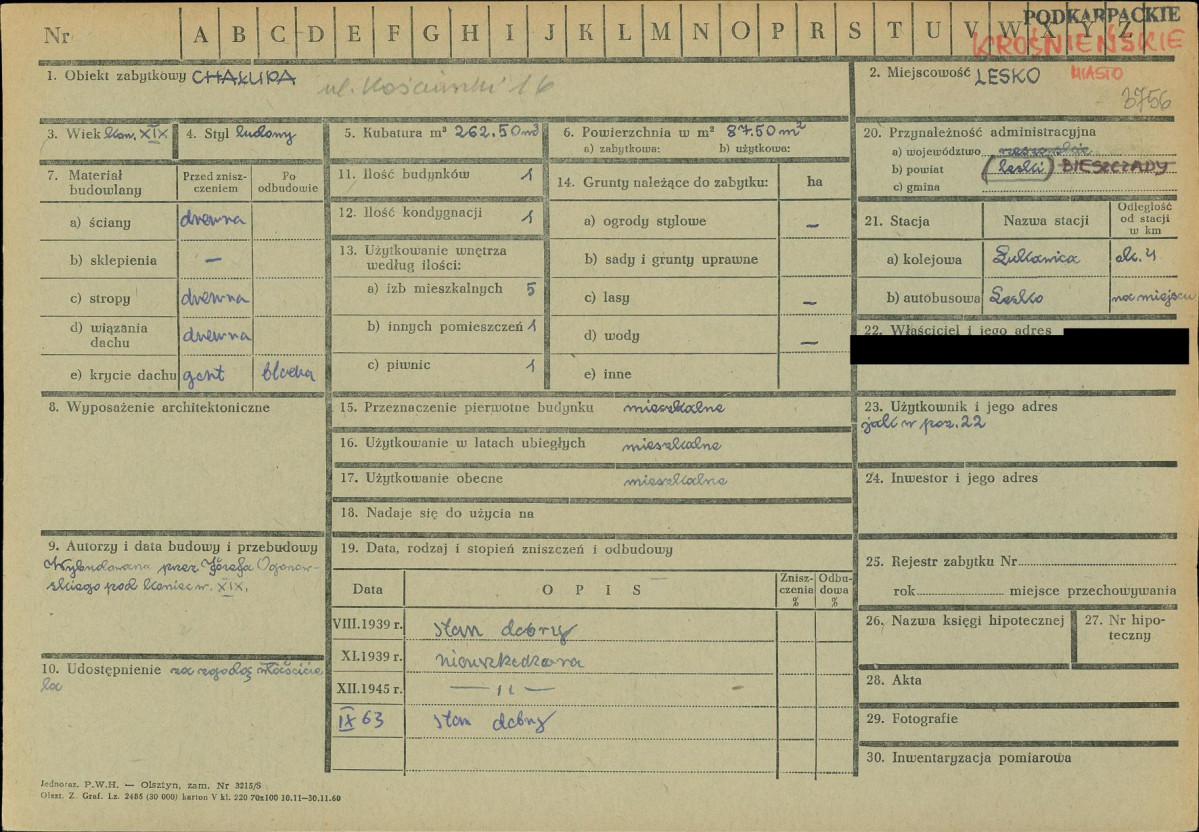 Nr A B C D E F G H I J K L M N O P R S T U V W X Y Z
PODKARPACKIE
KROŚNIEŃSKIE
1. Obiekt zabytkowy CHAŁUPA ul. Kościuszki 16
2. Miejscowość LESKO MIASTO
3756
3. Wiek kon. XIX
4. Styl ludowy
5. Kubatura m³ 262.50 m³
6. Powierzchnia w m² 87.50 m²
a) zabytkowa: b) użytkowa:
20. Przynależność administracyjna
a) województwo rzeszowskie
b) powiat (leski) BIESZCZADY
c) gmina
7. Materiał budowlany
Przed zniszczeniem
Po odbudowie
a) ściany drewna
b) sklepienia —
c) stropy drewna
d) wiązania dachu drewna
e) krycie dachu gont blacha
11. Ilość budynków 1
12. Ilość kondygnacji 1
13. Użytkowanie wnętrza
według ilości:
a) izb mieszkalnych 5
b) innych pomieszczeń 1
c) piwnic 1
14. Grunty należące do zabytku: ha
a) ogrody stylowe —
b) sady i grunty uprawne
c) lasy —
d) wody —
e) inne
21. Stacja
Nazwa stacji
Odległość
od stacji
w km
a) kolejowa Łukawica ok. 4
b) autobusowa Lesko na miejscu
22. Właściciel i jego adres
8. Wyposażenie architektoniczne
15. Przeznaczenie pierwotne budynku mieszkalne
16. Użytkowanie w latach ubiegłych mieszkalne
17. Użytkowanie obecne mieszkalne
18. Nadaje się do użycia na
23. Użytkownik i jego adres
jak w poz. 22
24. Inwestor i jego adres
9. Autorzy i data budowy i przebudowy
Wybudowana przez Józefa Ogonow-
skiego pod koniec w. XIX.
10. Udostępnienie za zgodą właścicie
la
19. Data, rodzaj i stopień zniszczeń i odbudowy
Data
O P I S
Znisz-
czenia
%
Odbu-
dowa
%
VIII.1939 r. stan dobry
XI.1939 r. nieuszkodzona
XII.1945 r. — " —
IX 63 stan dobry
25. Rejestr zabytku Nr
rok miejsce przechowywania
26. Nazwa księgi hipotecznej
27. Nr hipo-
teczny
28. Akta
29. Fotografie
30. Inwentaryzacja pomiarowa
Jednoraz. P.W.H. — Olsztyn, zam. Nr 3215/S
Olszt. Z. Graf. Lz. 2485 (30 000) karton V kl. 220 70x100 10.11—30.11.60